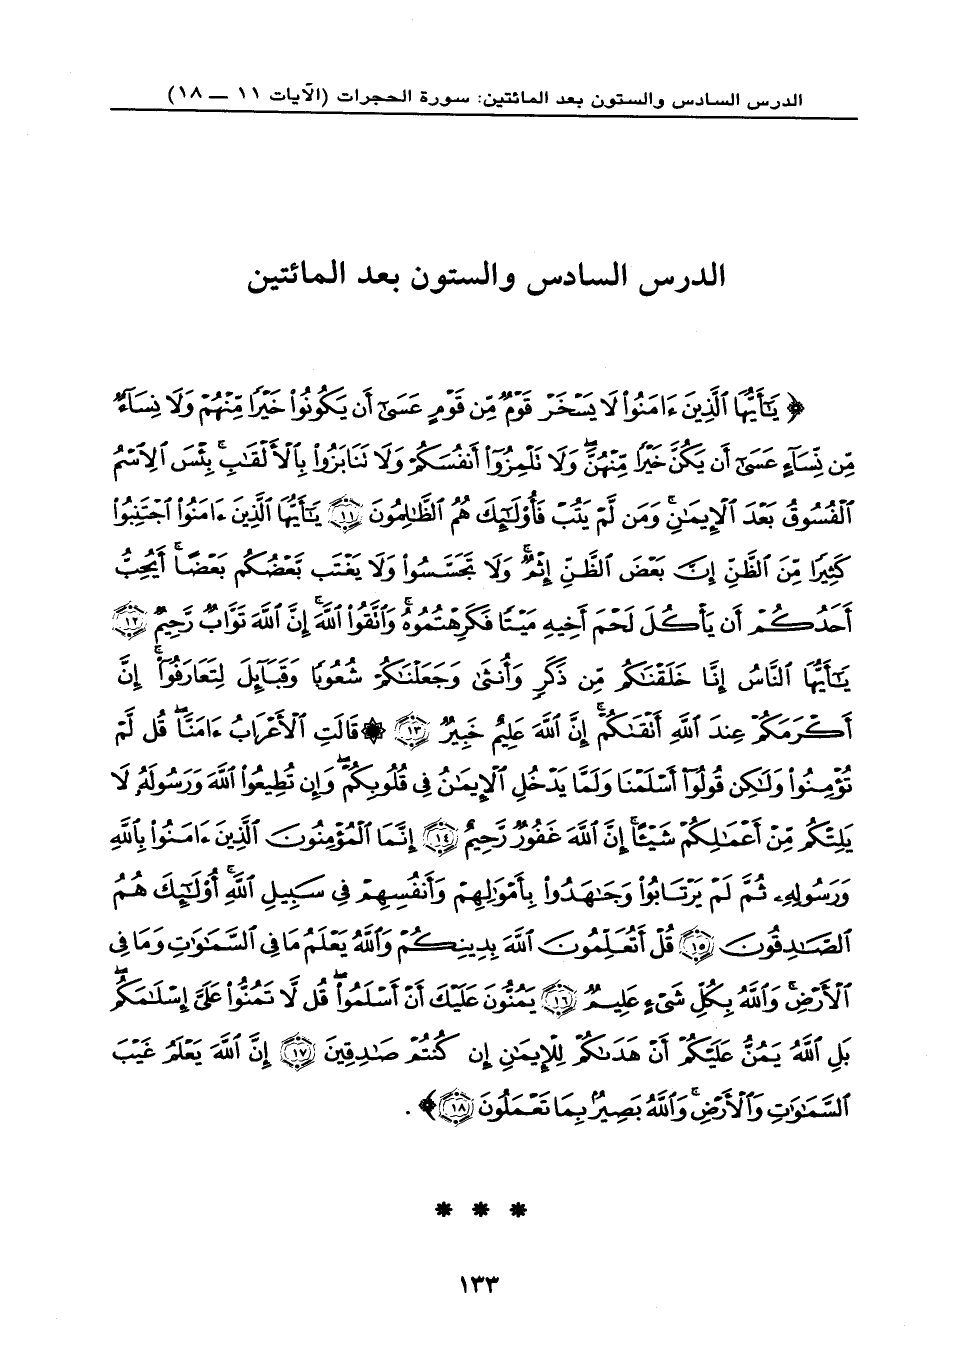 الدرس السادس والستون بعد المائتين: سورة الحجرات (الآيات ١١ — ١٨)
الدرس السادس والستون بعد المائتين
﴿ يَٰٓأَيُّهَا ٱلَّذِينَ ءَامَنُوا۟ لَا يَسْخَرْ قَوْمٌ مِّن قَوْمٍ عَسَىٰٓ أَن يَكُونُوا۟ خَيْرًا مِّنْهُمْ وَلَا نِسَآءٌ
مِّن نِّسَآءٍ عَسَىٰٓ أَن يَكُنَّ خَيْرًا مِّنْهُنَّ ۖ وَلَا تَلْمِزُوٓا۟ أَنفُسَكُمْ وَلَا تَنَابَزُوا۟ بِٱلْأَلْقَٰبِ ۖ بِئْسَ ٱلِٱسْمُ
ٱلْفُسُوقُ بَعْدَ ٱلْإِيمَٰنِ ۚ وَمَن لَّمْ يَتُبْ فَأُو۟لَٰٓئِكَ هُمُ ٱلظَّٰلِمُونَ ۝١١ يَٰٓأَيُّهَا ٱلَّذِينَ ءَامَنُوا۟ ٱجْتَنِبُوا۟
كَثِيرًا مِّنَ ٱلظَّنِّ إِنَّ بَعْضَ ٱلظَّنِّ إِثْمٌ ۖ وَلَا تَجَسَّسُوا۟ وَلَا يَغْتَب بَّعْضُكُم بَعْضًا ۚ أَيُحِبُّ
أَحَدُكُمْ أَن يَأْكُلَ لَحْمَ أَخِيهِ مَيْتًا فَكَرِهْتُمُوهُ ۚ وَٱتَّقُوا۟ ٱللَّهَ ۚ إِنَّ ٱللَّهَ تَوَّابٌ رَّحِيمٌ ۝١٢
يَٰٓأَيُّهَا ٱلنَّاسُ إِنَّا خَلَقْنَٰكُم مِّن ذَكَرٍ وَأُنثَىٰ وَجَعَلْنَٰكُمْ شُعُوبًا وَقَبَآئِلَ لِتَعَارَفُوٓا۟ ۚ إِنَّ
أَكْرَمَكُمْ عِندَ ٱللَّهِ أَتْقَىٰكُمْ ۚ إِنَّ ٱللَّهَ عَلِيمٌ خَبِيرٌ ۝١٣ ۞ قَالَتِ ٱلْأَعْرَابُ ءَامَنَّا ۖ قُل لَّمْ
تُؤْمِنُوا۟ وَلَٰكِن قُولُوٓا۟ أَسْلَمْنَا وَلَمَّا يَدْخُلِ ٱلْإِيمَٰنُ فِى قُلُوبِكُمْ ۖ وَإِن تُطِيعُوا۟ ٱللَّهَ وَرَسُولَهُۥ لَا
يَلِتْكُم مِّنْ أَعْمَٰلِكُمْ شَيْـًٔا ۚ إِنَّ ٱللَّهَ غَفُورٌ رَّحِيمٌ ۝١٤ إِنَّمَا ٱلْمُؤْمِنُونَ ٱلَّذِينَ ءَامَنُوا۟ بِٱللَّهِ
وَرَسُولِهِۦ ثُمَّ لَمْ يَرْتَابُوا۟ وَجَٰهَدُوا۟ بِأَمْوَٰلِهِمْ وَأَنفُسِهِمْ فِى سَبِيلِ ٱللَّهِ ۚ أُو۟لَٰٓئِكَ هُمُ
ٱلصَّٰدِقُونَ ۝١٥ قُلْ أَتُعَلِّمُونَ ٱللَّهَ بِدِينِكُمْ وَٱللَّهُ يَعْلَمُ مَا فِى ٱلسَّمَٰوَٰتِ وَمَا فِى
ٱلْأَرْضِ ۚ وَٱللَّهُ بِكُلِّ شَىْءٍ عَلِيمٌ ۝١٦ يَمُنُّونَ عَلَيْكَ أَنْ أَسْلَمُوا۟ ۖ قُل لَّا تَمُنُّوا۟ عَلَىَّ إِسْلَٰمَكُم ۖ
بَلِ ٱللَّهُ يَمُنُّ عَلَيْكُمْ أَنْ هَدَىٰكُمْ لِلْإِيمَٰنِ إِن كُنتُمْ صَٰدِقِينَ ۝١٧ إِنَّ ٱللَّهَ يَعْلَمُ غَيْبَ
ٱلسَّمَٰوَٰتِ وَٱلْأَرْضِ ۚ وَٱللَّهُ بَصِيرٌۢ بِمَا تَعْمَلُونَ ۝١٨ ﴾ .
* * *
١٣٣